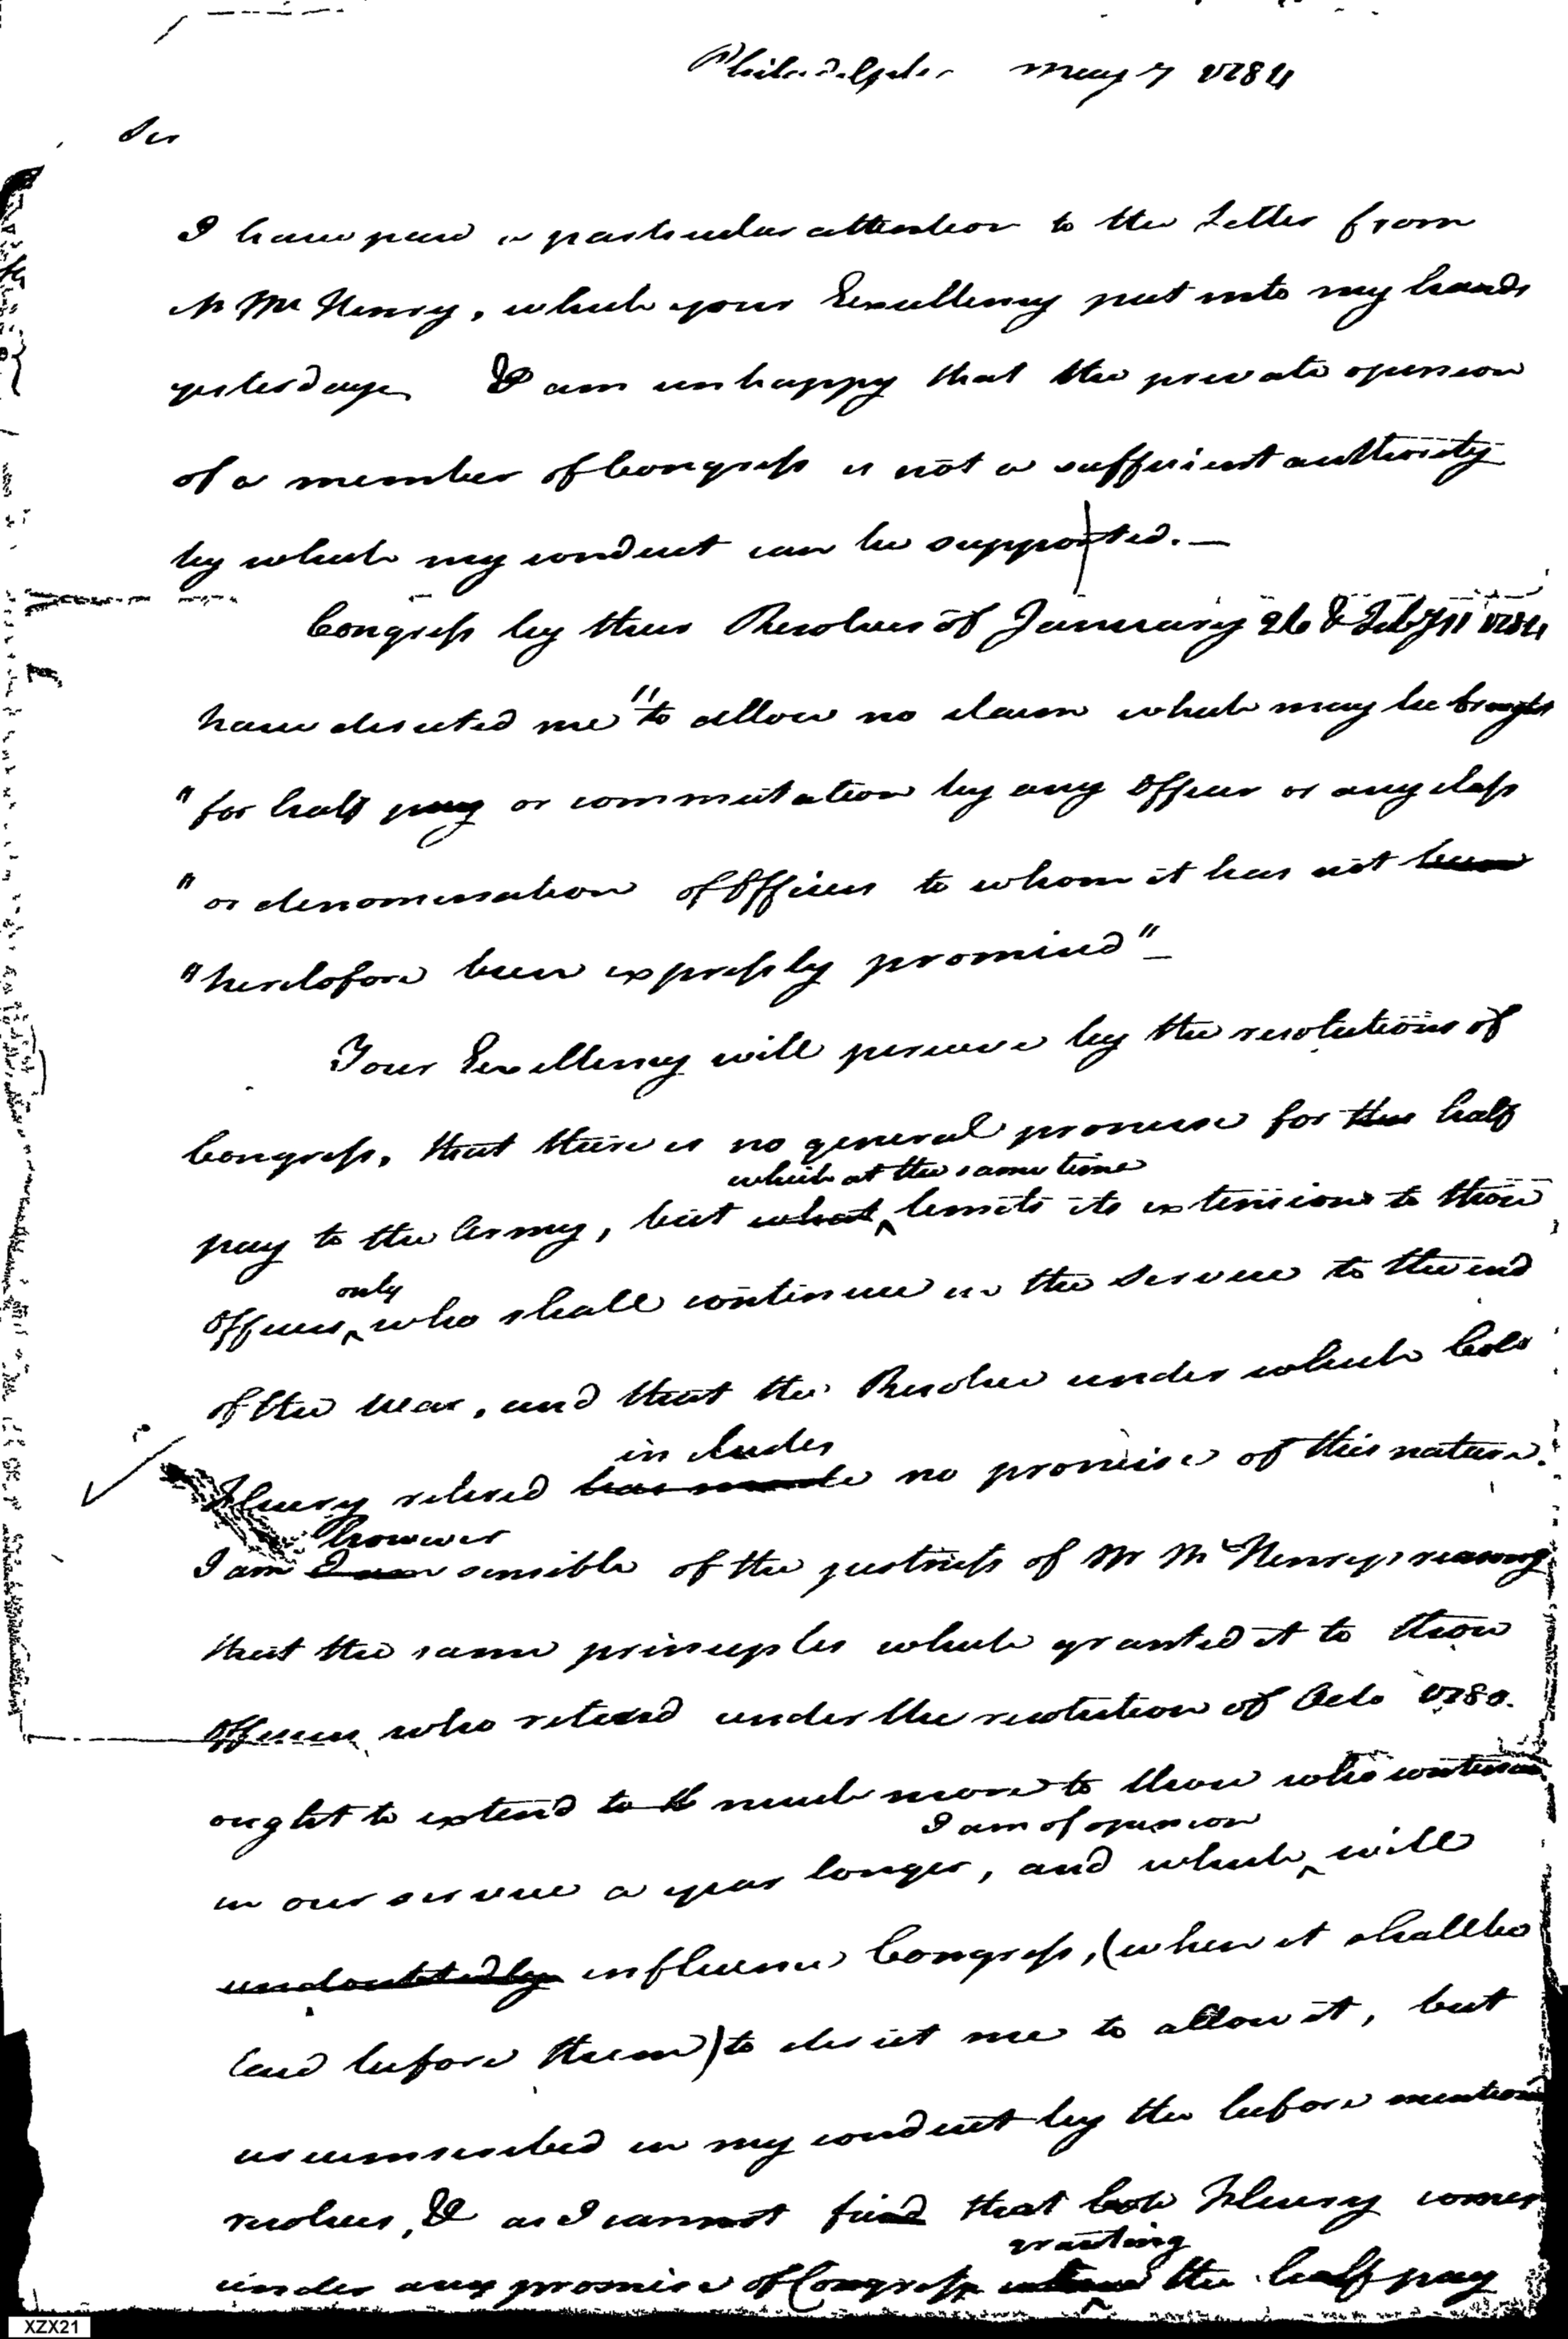 Philadelphia May 7 1784
Sir
I have paid a particular attention to the Letter from
Mr McHenry, which your Excellency put into my hands
yesterday I am unhappy that the private opinion
of a member of Congress is not a sufficient authority
by which my conduct can be supported. —
Congress by their Resolves of January 26 & Feby 11 1784
have directed me "to allow no claim which may be brought
" for half pay or commutation by any Officer or any class
" or denomination of Officers to whom it has not been
" heretofore been expressly promised" —
Your Excellency will perceive by the resolutions of
Congress, that there is no general promise for the half
which at the same time
pay to the Army, but what limits its extension to those
only
Officers who shall continue in the Service to the end
of the war, and that the Resolve under which Colo
includes
Fleury retired has made no promise of this nature.
however
I am I am sensible of the justness of Mr McHenrys reasong
that the same principles which granted it to those
Officers who retired under the resolution of Octo 1780.
ought to extend to th much more to those who continued
I am of opinion
in our service a year longer, and which will
undoubtedly influence Congress, (when it shall be
laid before them) to direct me to allow it, but
circumscribed in my conduct by the before mentiond
resolves, & as I cannot find that Colo Fleury comes
granting
under any promise of Congress the half pay
XZX21